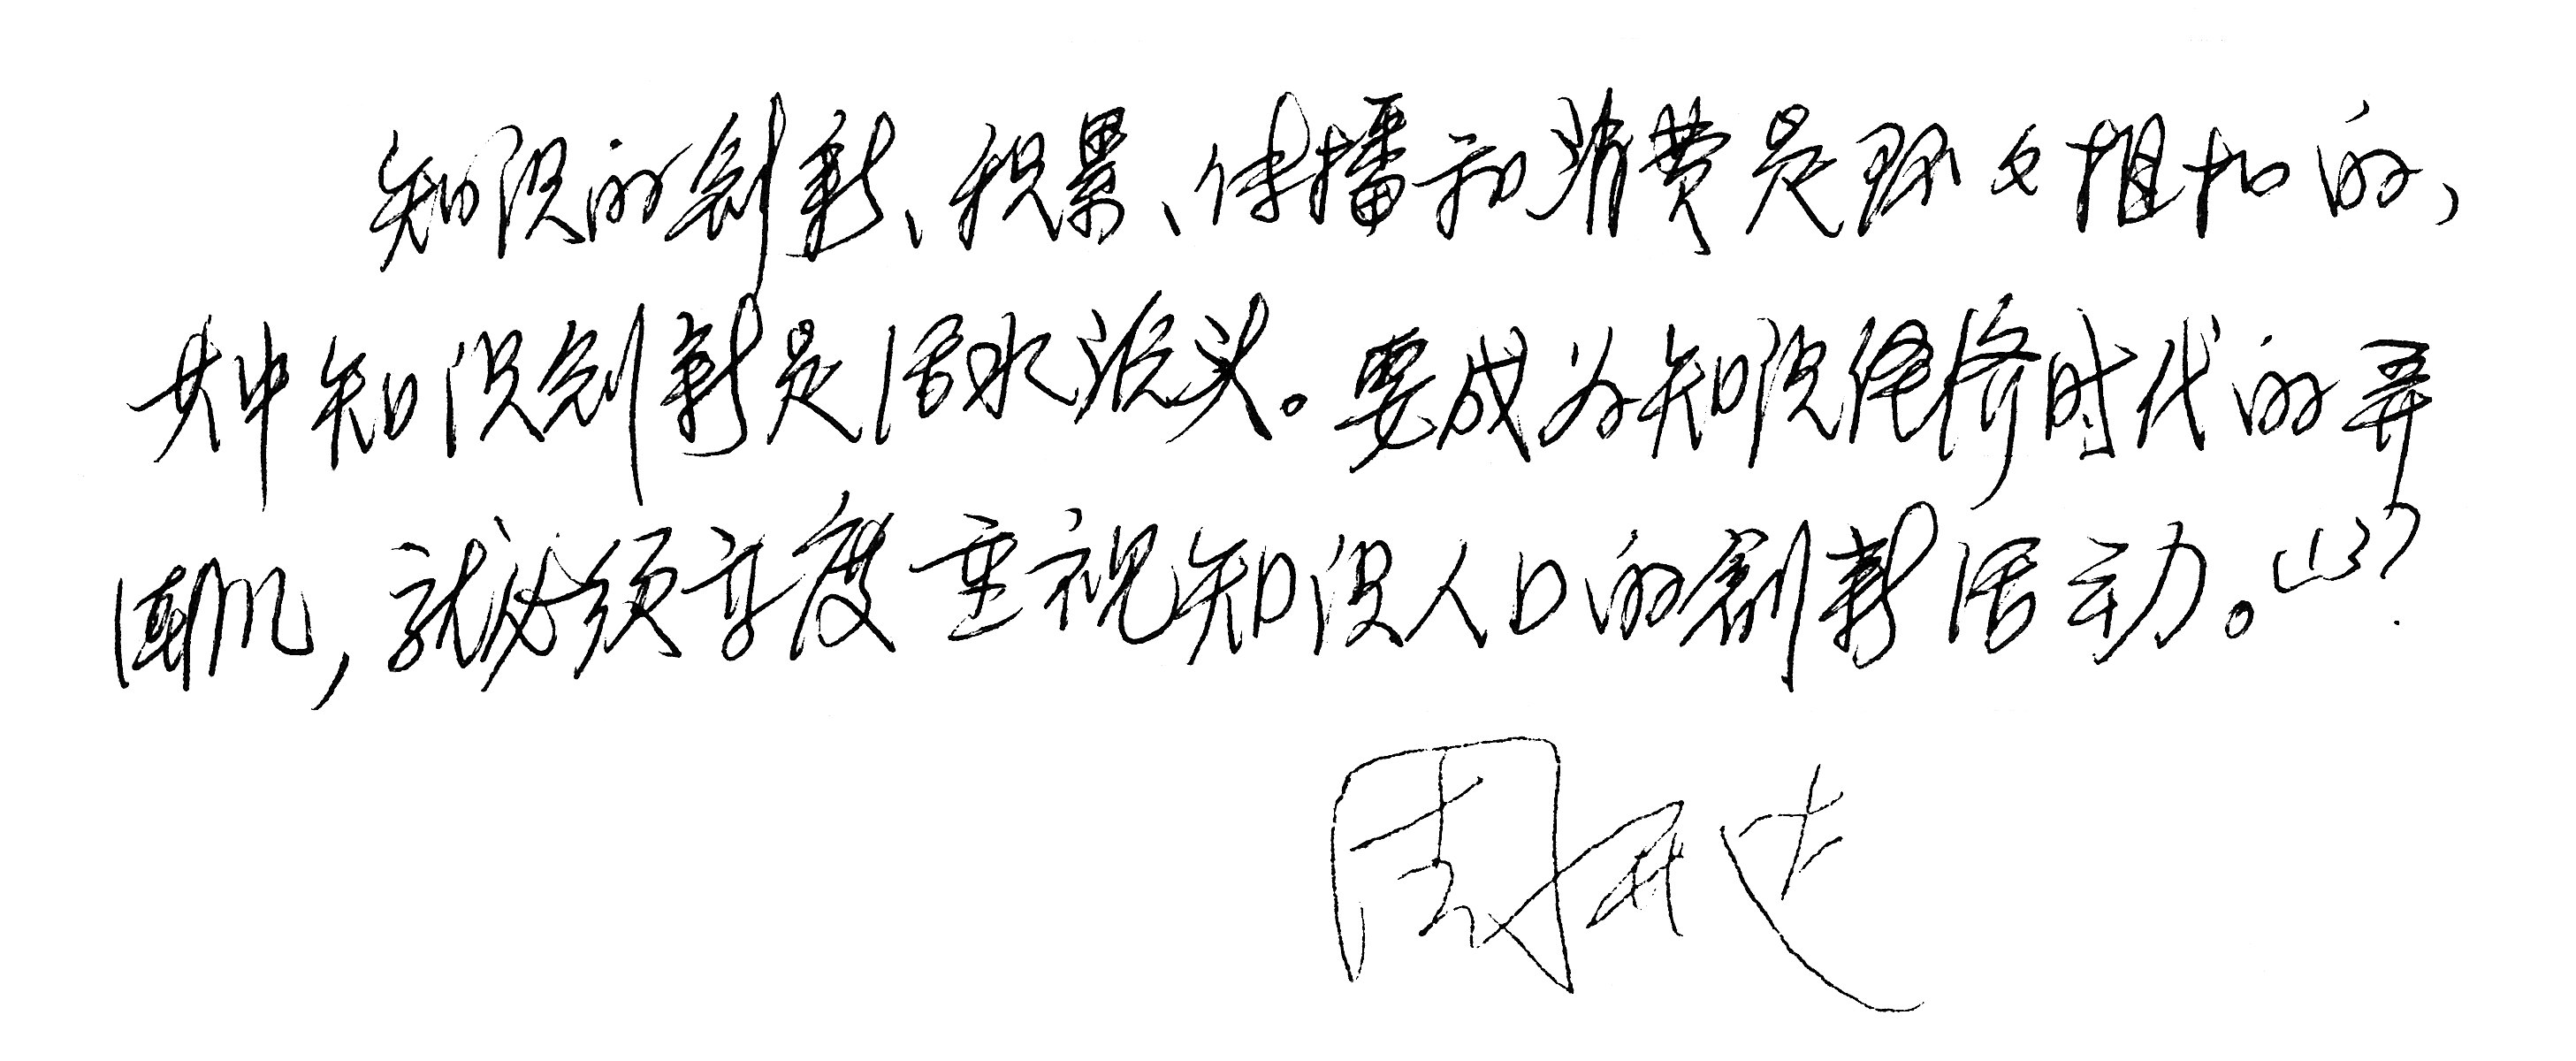 知识的创新、积累、传播和消费是环环相扣的,
其中知识创新是活水源头。要成为知识经济时代的弄
潮儿,就必须高度重视知识人口的创新活动。
周开达